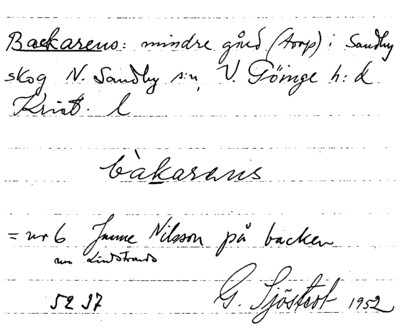 Backarens: mindre gård (torp) i Sandby
skog N. Sandby s:n, V. Göinge h:d
Krist. l
bàkarens
= nr 6 Janne Nilsson på backen
nu Lindstrands
52 37 G. Sjöstrot 1952